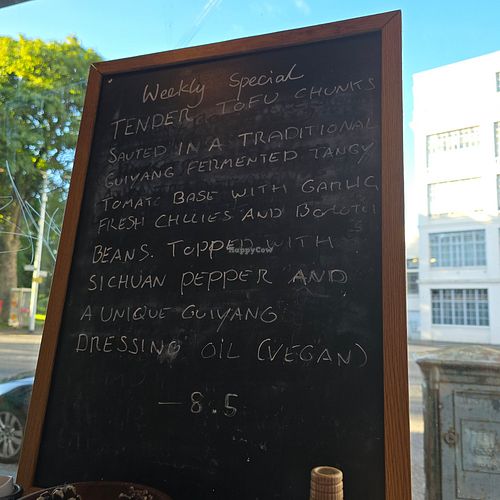 Weekly Special
TENDER TOFU CHUNKS
SAUTED IN A TRADITIONAL
GUIYANG FERMENTED TANGY
TOMATO BASE WITH GARLIC
FRESH CHILLIES AND BOLOTTI
BEANS. TOPPED WITH
SICHUAN PEPPER AND
A UNIQUE GUIYANG
DRESSING OIL (VEGAN)
- 8.5
HappyCow